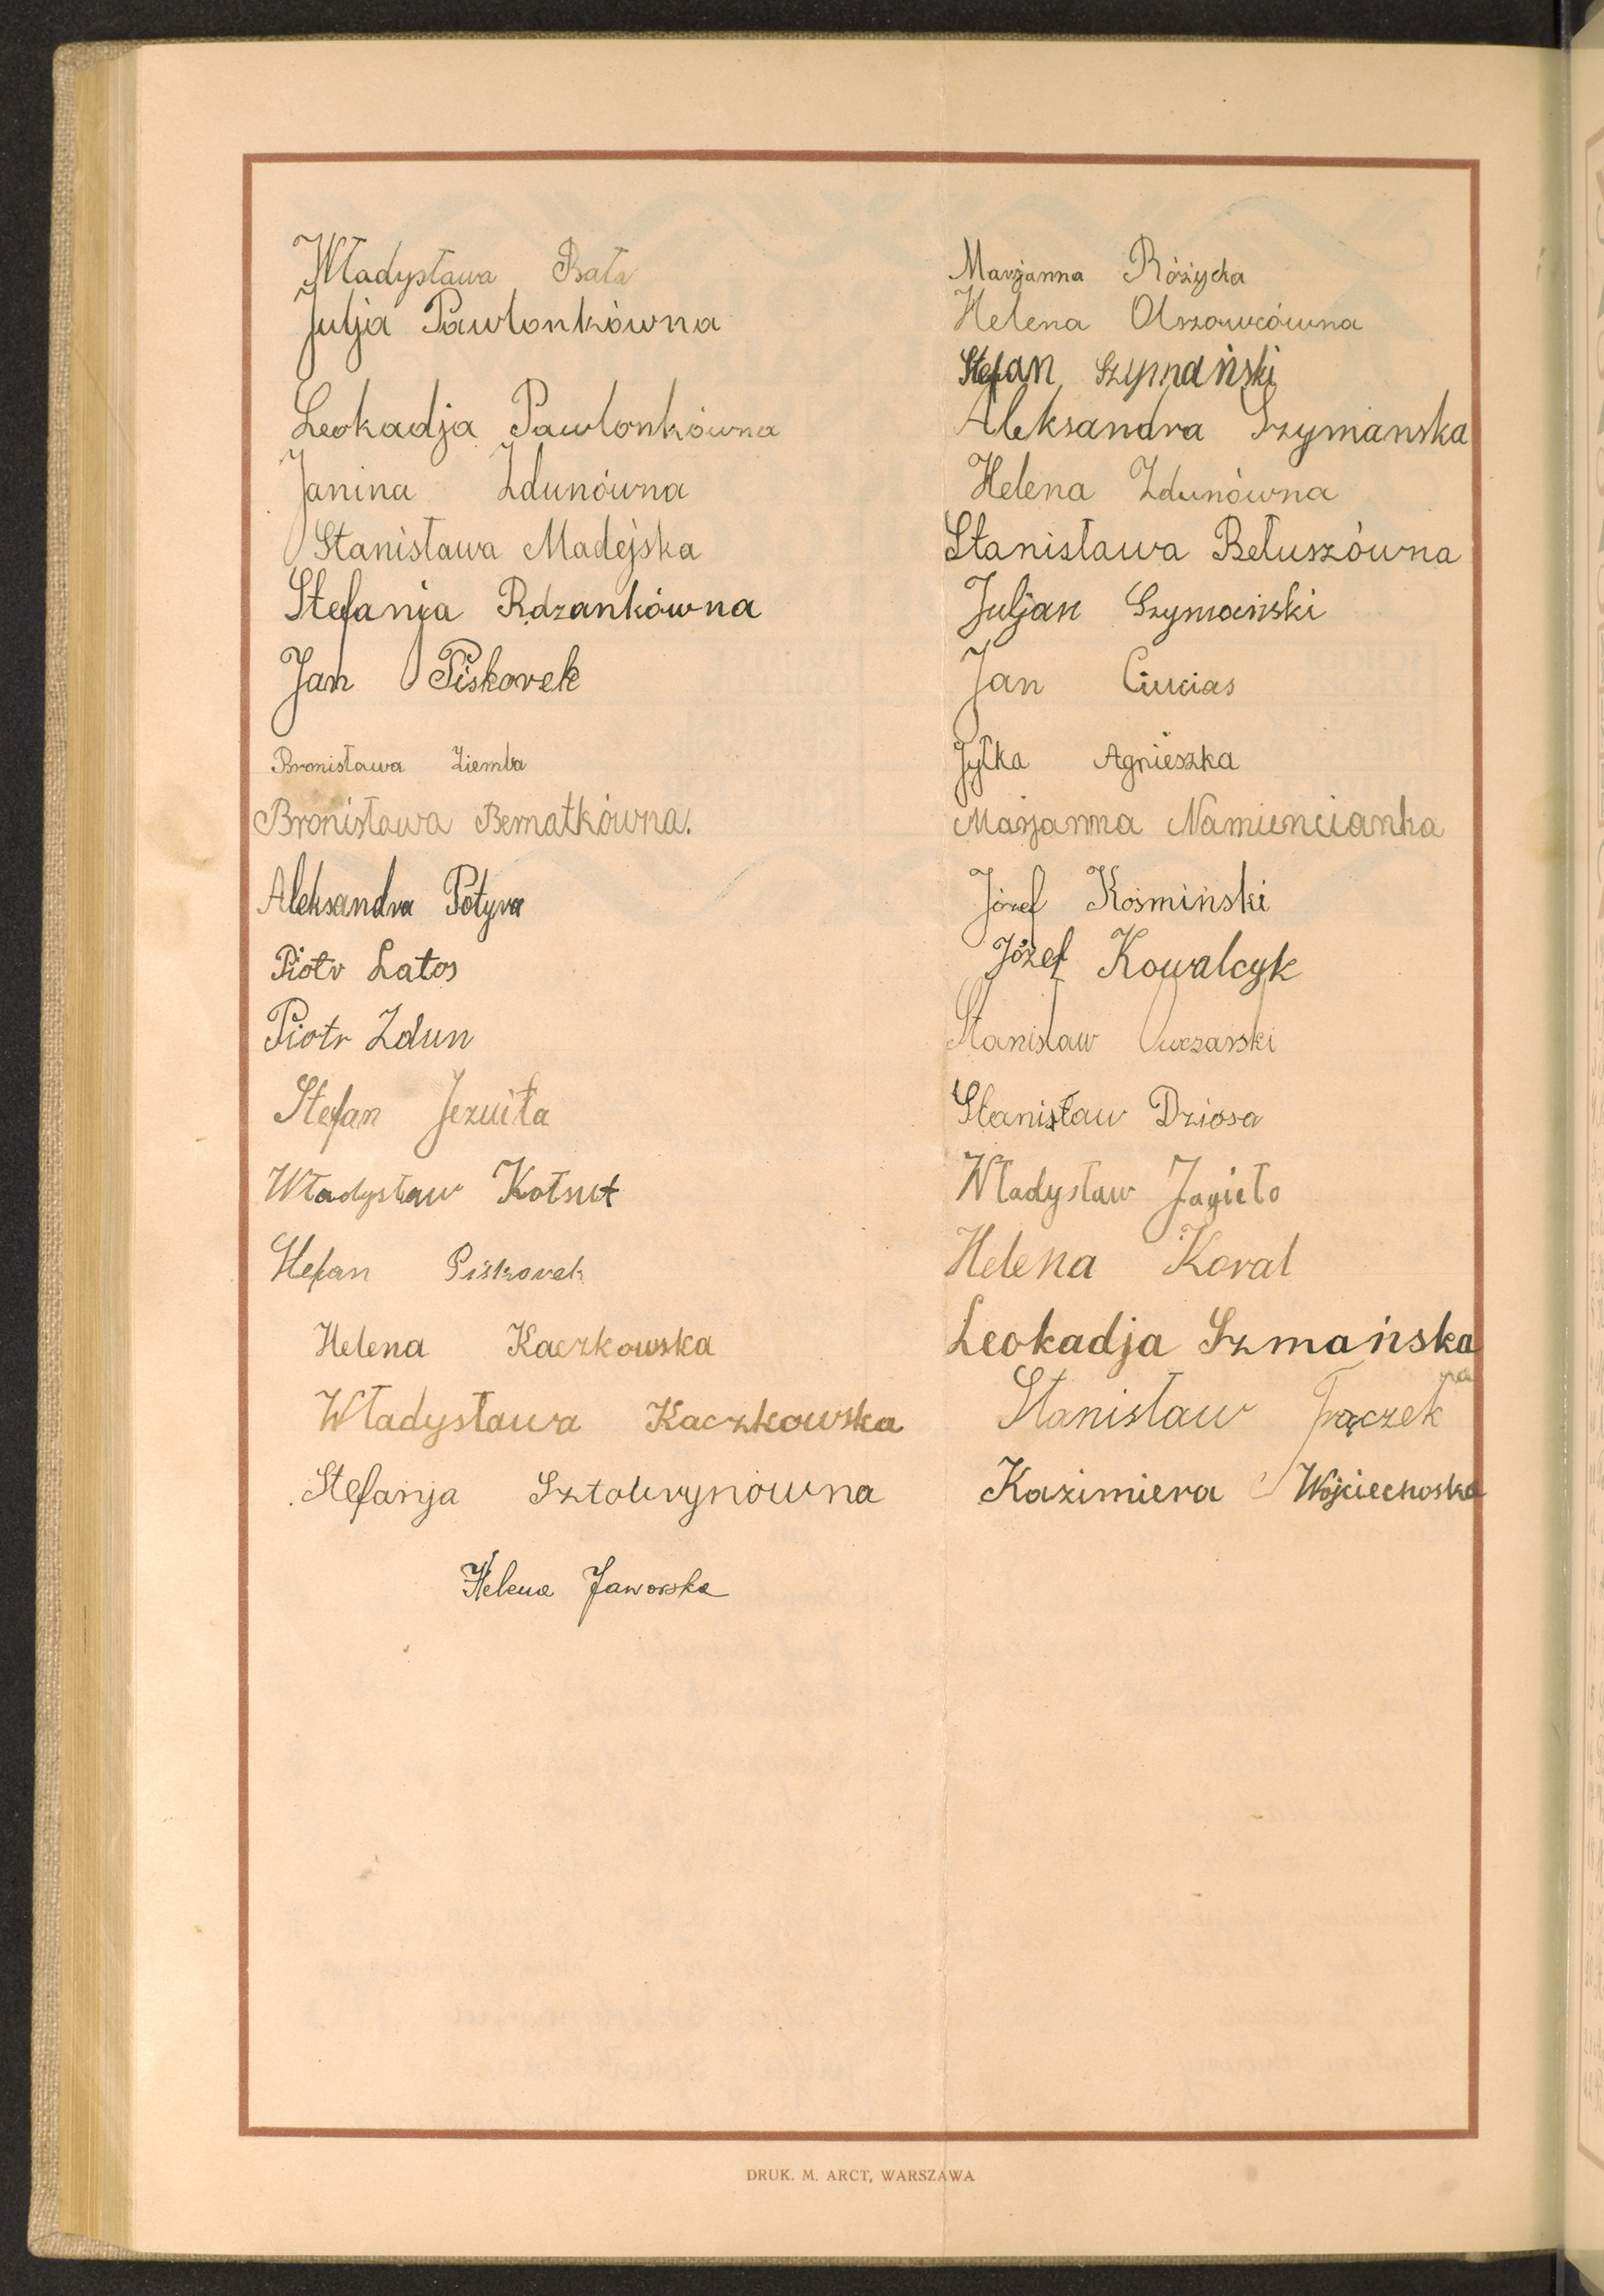 Władysława Bała
Julja Pawlonkówna
Leokadja Pawlonkówna
Janina Zdunówna
Stanisława Madejska
Stefanja Rdzankówna
Jan Piskorek
Bronisława Ziemba
Bronisława Bernatkówna.
Aleksandra Potyra
Piotr Latos
Piotr Zdun
Stefan Jezuita
Władysław Kołsut
Stefan Piskorek
Helena Kaczkowska
Władysława Kaczkowska
Stefanja Sztobrynówna
Helena Jaworska
Marjanna Różycka
Helena Olszowcówna
Stefan Szymański
Aleksandra Szymanska
Helena Zdunówna
Stanisława Bełuszówna
Juljan Szymański
Jan Ciucias
Jytka Agnieszka
Marjanna Namiencianka
Józef Kośmiński
Józef Kowalcyk
Stanisław Owczarski
Stanisław Dziosa
Władysław Jagieło
Helena Koral
Leokadja Szmańska
Stanisław Frączek
Kazimiera Wojciechoska
DRUK. M. ARCT, WARSZAWA